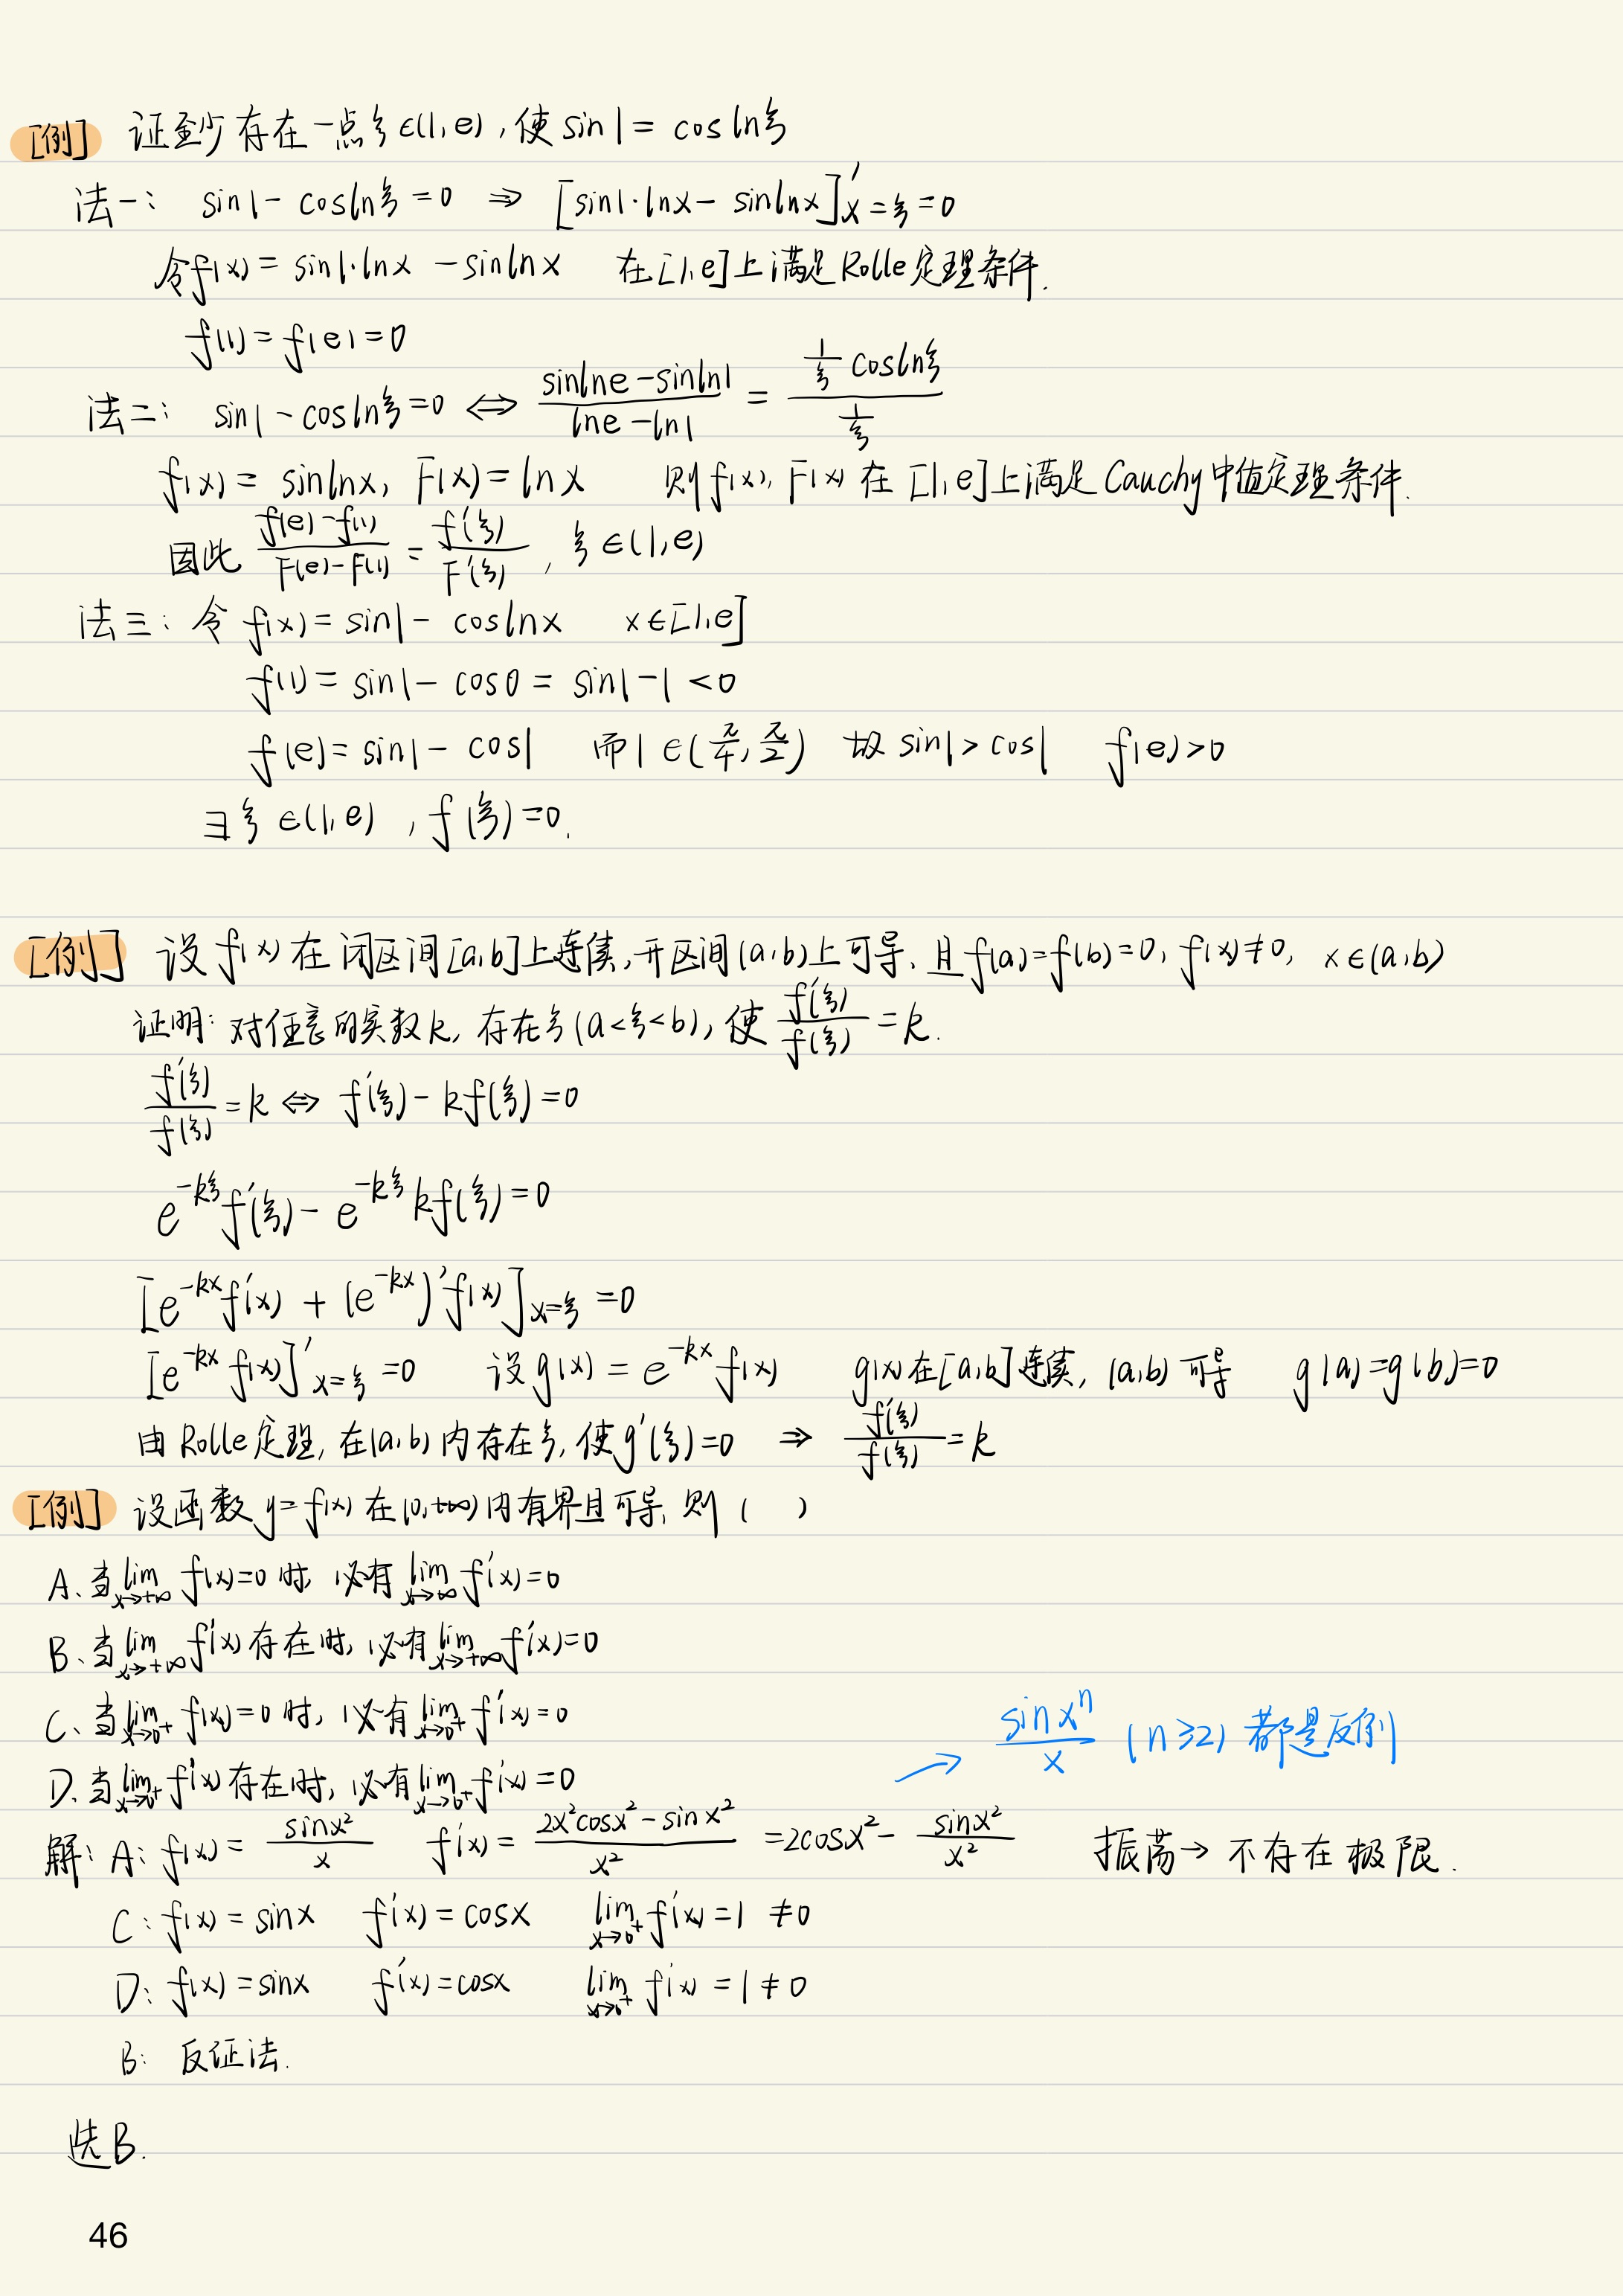 [例] 证至少存在一点ξ∈(1,e),使 sin1 = cos lnξ
法一: sin1 - coslnξ = 0 ⇒ [sin1·lnx - sinlnx]'x=ξ = 0
令f(x) = sin1·lnx - sinlnx 在[1,e]上满足Rolle定理条件.
f(1) = f(e) = 0
法二: sin1 - coslnξ = 0 ⇔ (sinlne - sinln1)/(lne - ln1) = (1/ξ coslnξ)/(1/ξ)
f(x) = sinlnx, F(x) = lnx 则f(x), F(x)在[1,e]上满足Cauchy中值定理条件.
因此 (f(e)-f(1))/(F(e)-F(1)) = f'(ξ)/F'(ξ), ξ∈(1,e)
法三: 令 f(x) = sin1 - coslnx x∈[1,e]
f(1) = sin1 - cos0 = sin1 - 1 < 0
f(e) = sin1 - cos1 而1∈(π/4, π/2) 故 sin1 > cos1 f(e) > 0
∃ξ∈(1,e), f(ξ) = 0.
[例] 设f(x)在闭区间[a,b]上连续,开区间(a,b)上可导,且f(a)=f(b)=0, f(x)≠0, x∈(a,b)
证明: 对任意的实数k, 存在ξ(a<ξ<b), 使 f'(ξ)/f(ξ) = k.
f'(ξ)/f(ξ) = k ⇔ f'(ξ) - kf(ξ) = 0
e^{-kξ}f'(ξ) - e^{-kξ}kf(ξ) = 0
[e^{-kx}f'(x) + (e^{-kx})'f(x)]x=ξ = 0
[e^{-kx}f(x)]'x=ξ = 0 设g(x) = e^{-kx}f(x) g(x)在[a,b]连续, (a,b)可导 g(a)=g(b)=0
由Rolle定理, 在(a,b)内存在ξ, 使g'(ξ)=0 ⇒ f'(ξ)/f(ξ) = k
[例] 设函数y=f(x)在(0,+∞)内有界且可导, 则 ( )
A、当lim x→+∞ f(x)=0时, 必有lim x→+∞ f'(x)=0
B、当lim x→+∞ f'(x)存在时, 必有lim x→+∞ f'(x)=0
C、当lim x→0+ f(x)=0时, 必有lim x→0+ f'(x)=0
D、当lim x→0+ f'(x)存在时, 必有lim x→0+ f'(x)=0
→ sinx^n/x (n≥2) 都是反例
解: A: f(x) = sinx²/x f'(x) = (2x²cosx² - sinx²)/x² = 2cosx² - sinx²/x² 振荡→不存在极限.
C: f(x) = sinx f'(x) = cosx lim x→0+ f'(x) = 1 ≠ 0
D: f(x) = sinx f'(x) = cosx lim x→0+ f'(x) = 1 ≠ 0
B: 反证法.
选B.
46